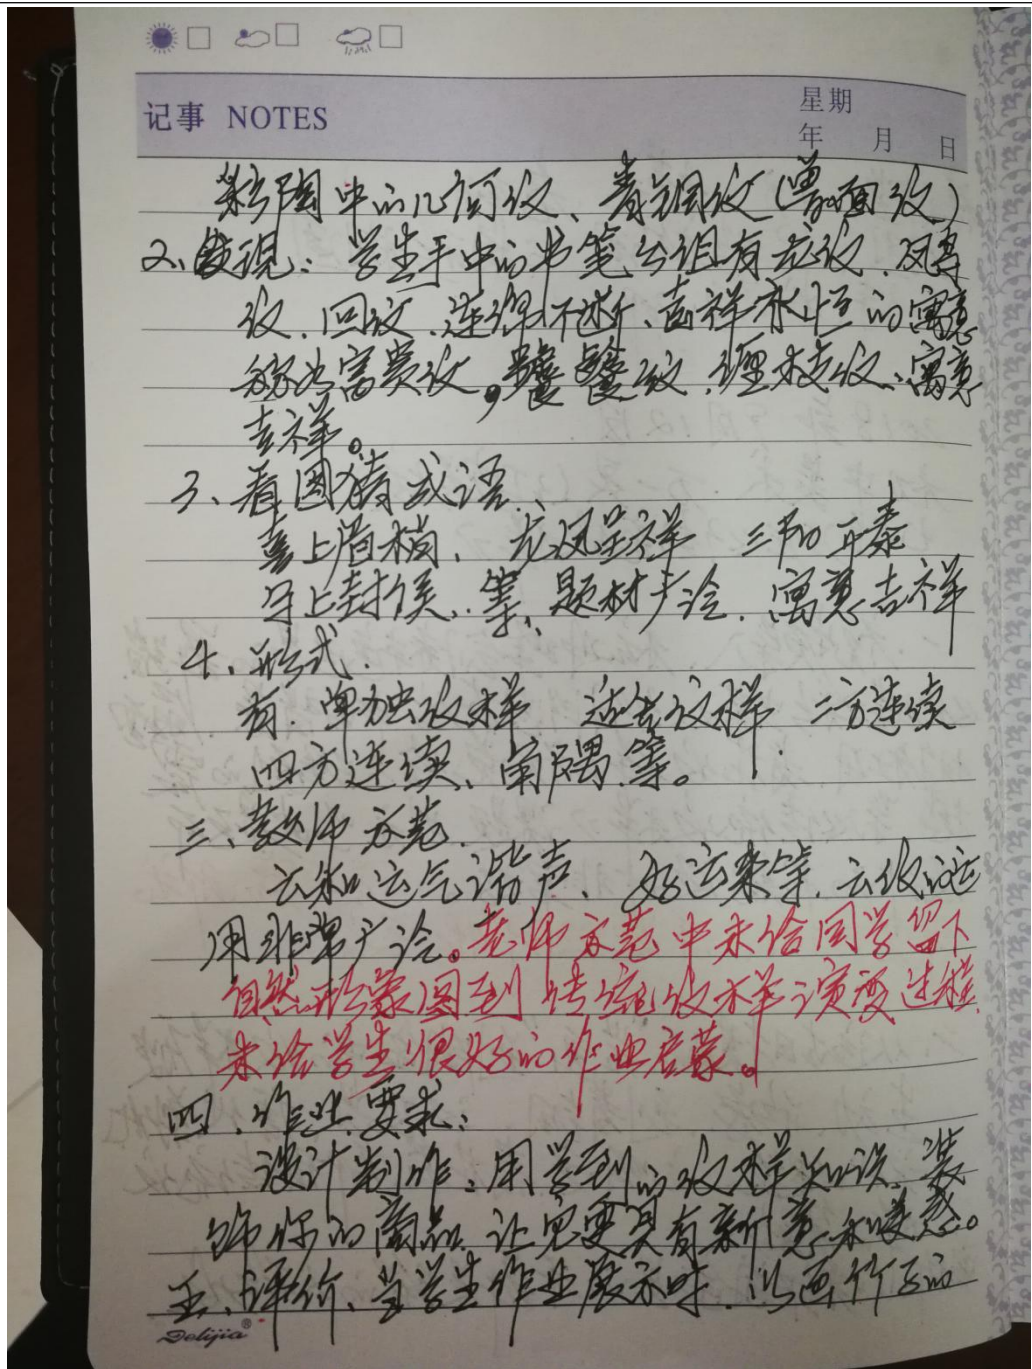 记事 NOTES
星期
年 月 日
彩陶中的几何纹、青铜纹(兽面纹)
2、发现:学生手中的书笔台词有龙纹、凤鸟
纹、回纹、连绵不断、吉祥永恒的寓意
富贵纹。饕餮纹、缠枝纹、寓意
吉祥。
3、看图猜成语、
喜上眉梢、龙凤呈祥 三阳开泰
马上封侯、等、题材广泛、寓意吉祥
4、形式.
有.单独纹样 适合纹样 二方连续
四方连续、角隅等。
三、教师示范.
云和运气谐声、好运来等、云纹的运
用非常广泛。老师示范中未给同学留下
自然形象图到传统纹样演变过程
未给学生很好的作业启蒙。
四、作业要求:
设计制作、用学到的纹样知识、装
饰你的商品、让它更具有新意和美感。
五、评价、当学生作业展示时、以画竹子的
Delijia®